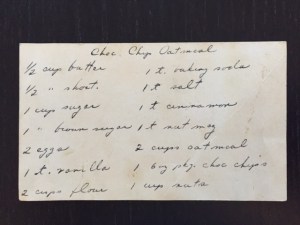 Choc Chip Oatmeal
1/2 cup butter 1 t. baking soda
1/2 " short. 1 t salt
1 cup sugar 1 t. cinnamon
1 " brown sugar 1 t. nutmeg
2 eggs 2 cups oatmeal
1 t. vanilla 1 6oz pkg. choc chips
2 cups flour 1 cup nuts